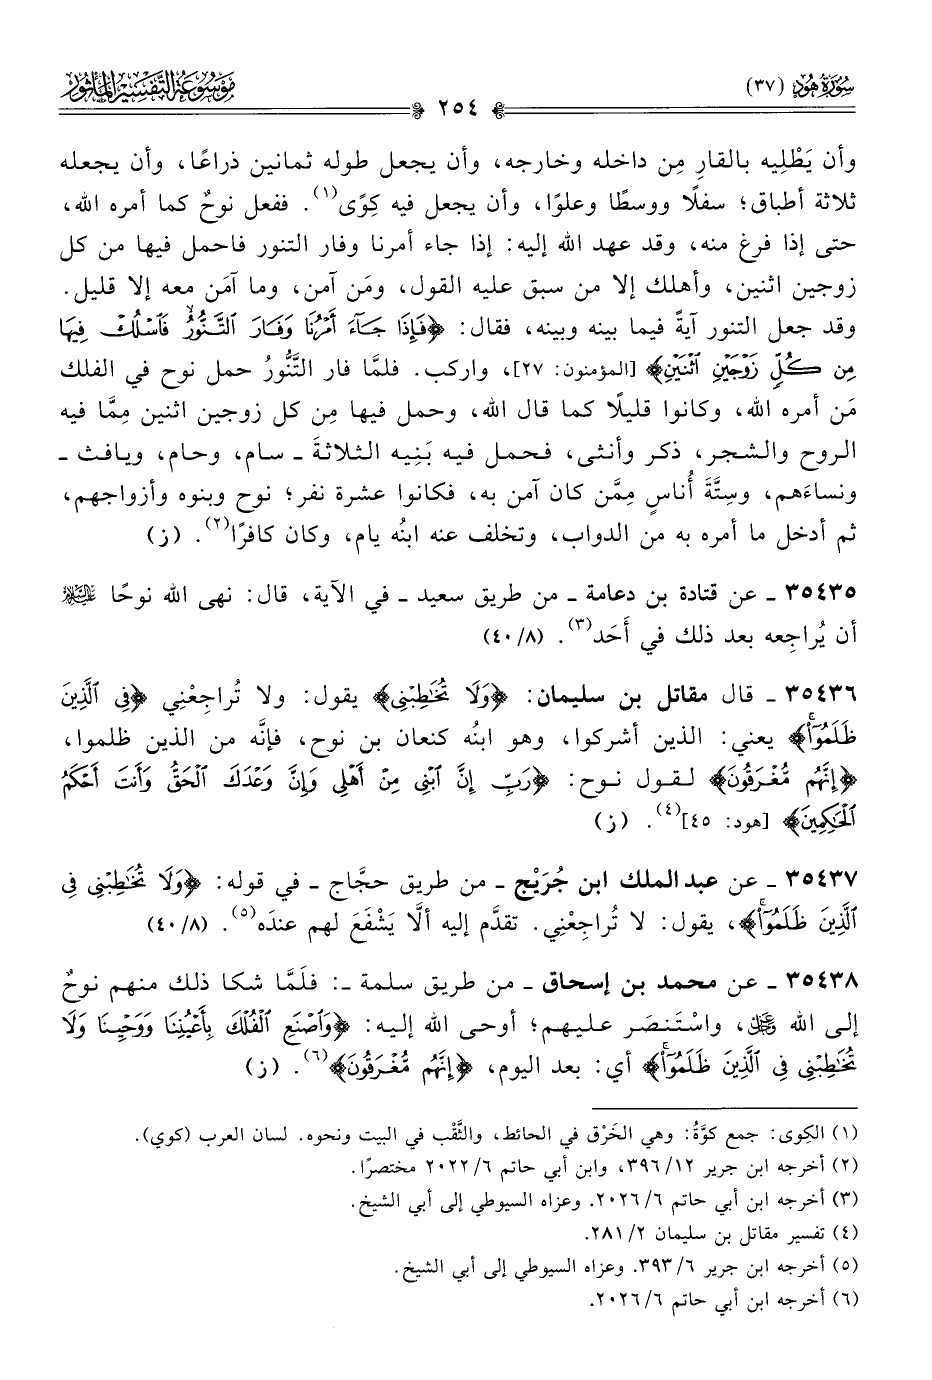 سُورَةُ هُودٍ (٣٧)
٢٥٤
مَوْسُوعَةُ التَّفْسِيرِ المَأْثُورِ
وأن يَطْلِيه بالقارِ مِن داخله وخارجه، وأن يجعل طوله ثمانين ذراعًا، وأن يجعله
ثلاثة أطباق؛ سفلًا ووسطًا وعلوًا، وأن يجعل فيه كِوًى(١). ففعل نوحٌ كما أمره الله،
حتى إذا فرغ منه، وقد عهد الله إليه: إذا جاء أمرنا وفار التنور فاحمل فيها من كل
زوجين اثنين، وأهلك إلا من سبق عليه القول، ومَن آمن، وما آمَن معه إلا قليل.
وقد جعل التنور آيةً فيما بينه وبينه، فقال: ﴿فَإِذَا جَآءَ أَمْرُنَا وَفَارَ ٱلتَّنُّورُ ۙ فَٱسْلُكْ فِيهَا
مِن كُلٍّ زَوْجَيْنِ ٱثْنَيْنِ﴾ [المؤمنون: ٢٧]، واركب. فلمَّا فار التَّنُّورُ حمل نوح في الفلك
مَن أمره الله، وكانوا قليلًا كما قال الله، وحمل فيها مِن كل زوجين اثنين مِمَّا فيه
الروح والشجر، ذكر وأنثى، فحمل فيه بَنِيه الثلاثةَ ـ سام، وحام، ويافث ـ
ونساءَهم، وستَّةَ أُناسٍ مِمَّن كان آمن به، فكانوا عشرة نفر؛ نوح وبنوه وأزواجهم،
ثم أدخل ما أمره به من الدواب، وتخلف عنه ابنُه يام، وكان كافرًا(٢). (ز)
٣٥٤٣٥ ـ عن قتادة بن دعامة ـ من طريق سعيد ـ في الآية، قال: نهى الله نوحًا عليه السلام
أن يُراجِعه بعد ذلك في أَحَد(٣). (٤٠/٨)
٣٥٤٣٦ ـ قال مقاتل بن سليمان: ﴿وَلَا تُخَٰطِبْنِى﴾ يقول: ولا تُراجِعْنِي ﴿فِى ٱلَّذِينَ
ظَلَمُوٓا۟ ۚ﴾ يعني: الذين أشركوا، وهو ابنُه كنعان بن نوح، فإنَّه من الذين ظلموا،
﴿إِنَّهُم مُّغْرَقُونَ﴾ لقول نوح: ﴿رَبِّ إِنَّ ٱبْنِى مِنْ أَهْلِى وَإِنَّ وَعْدَكَ ٱلْحَقُّ وَأَنتَ أَحْكَمُ
ٱلْحَٰكِمِينَ﴾ [هود: ٤٥](٤). (ز)
٣٥٤٣٧ ـ عن عبد الملك ابن جُرَيْج ـ من طريق حجَّاج ـ في قوله: ﴿وَلَا تُخَٰطِبْنِى فِى
ٱلَّذِينَ ظَلَمُوٓا۟ ۚ﴾، يقول: لا تُراجِعْنِي. تقدَّم إليه ألَّا يَشْفَعَ لهم عندَه(٥). (٤٠/٨)
٣٥٤٣٨ ـ عن محمد بن إسحاق ـ من طريق سلمة ـ: فلَمَّا شكا ذلك منهم نوحٌ
إلى الله عز وجل، واسْتَنصَر عليهم؛ أوحى الله إليه: ﴿وَٱصْنَعِ ٱلْفُلْكَ بِأَعْيُنِنَا وَوَحْيِنَا وَلَا
تُخَٰطِبْنِى فِى ٱلَّذِينَ ظَلَمُوٓا۟ ۚ﴾ أي: بعد اليوم، ﴿إِنَّهُم مُّغْرَقُونَ﴾(٦). (ز)
(١) الكِوى: جمع كوَّةُ: وهي الخَرْق في الحائط، والثَّقْب في البيت ونحوه. لسان العرب (كوي).
(٢) أخرجه ابن جرير ٣٩٦/١٢، وابن أبي حاتم ٢٠٢٢/٦ مختصرًا.
(٣) أخرجه ابن أبي حاتم ٢٠٢٦/٦. وعزاه السيوطي إلى أبي الشيخ.
(٤) تفسير مقاتل بن سليمان ٢٨١/٢.
(٥) أخرجه ابن جرير ٣٩٣/٦. وعزاه السيوطي إلى أبي الشيخ.
(٦) أخرجه ابن أبي حاتم ٢٠٢٦/٦.